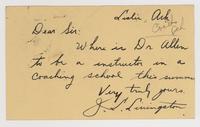 Leslie, Ark
Dear Sir:
Where is Dr Allen
to be a instructor in a
coaching school this summe
Very truly yours.
J. S. Livingston